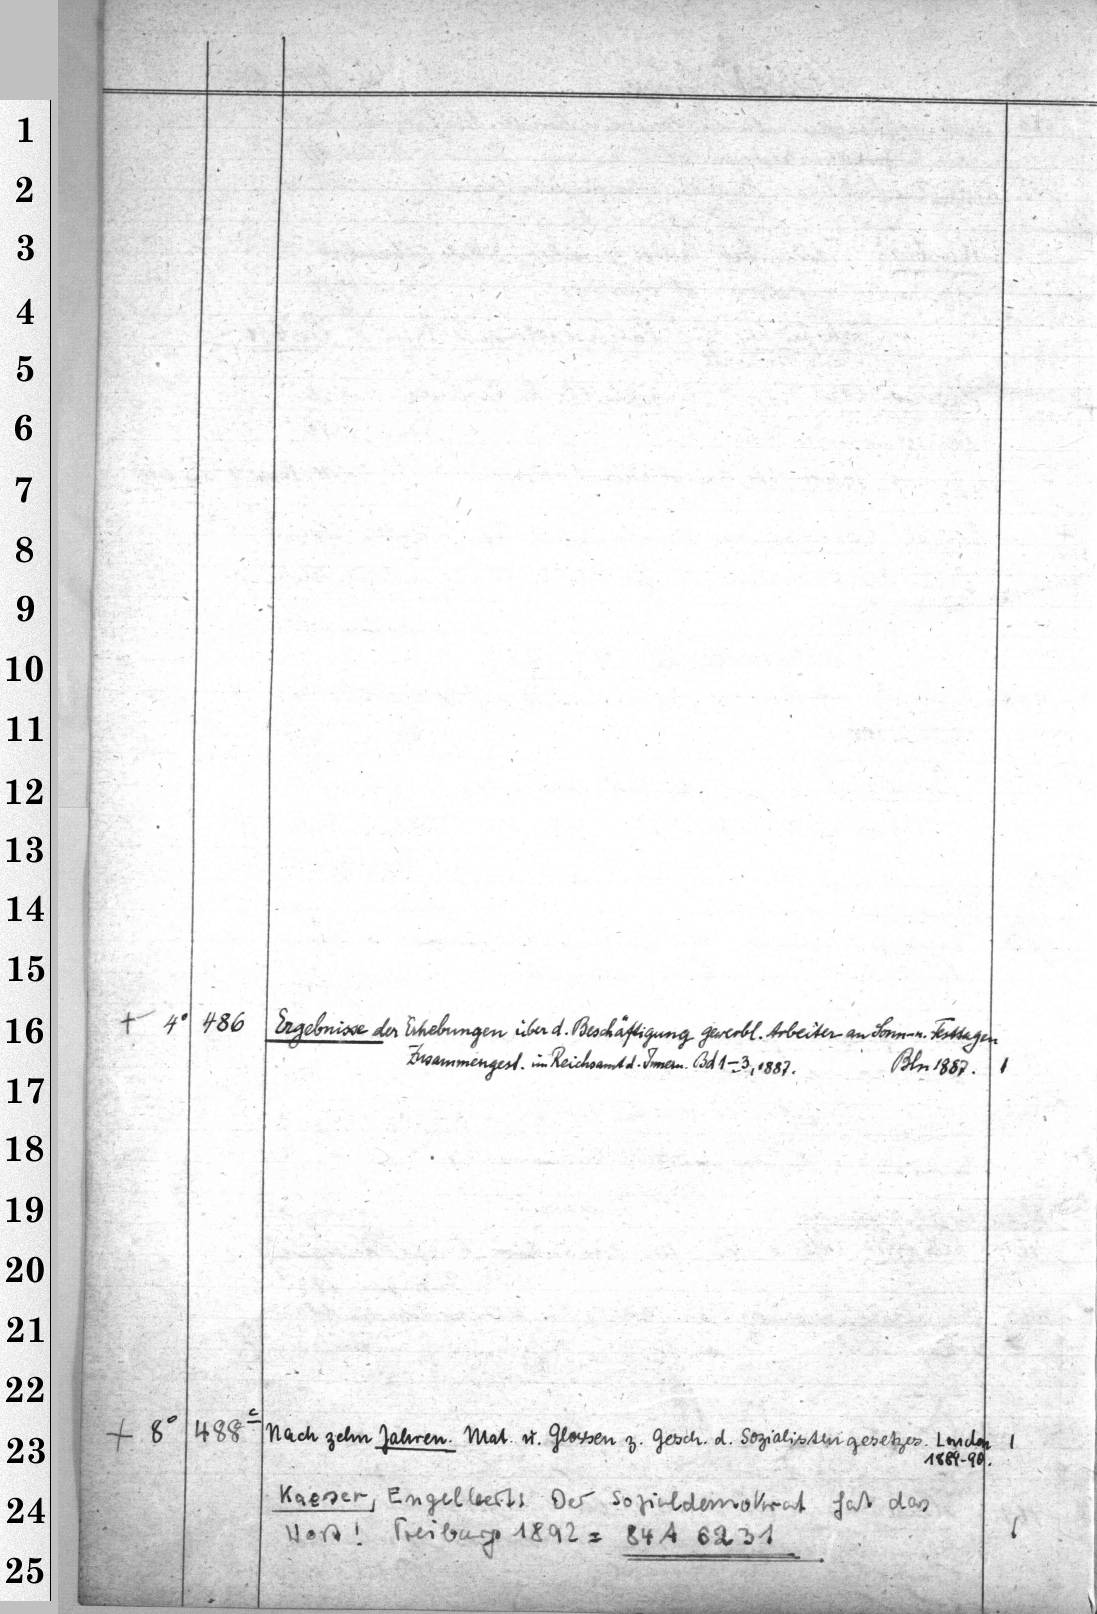 1
2
3
4
5
6
7
8
9
10
11
12
13
14
15
16
+ 4° 486 Ergebnisse der Erhebungen über d. Beschäftigung gewerbl. Arbeiter an Sonn- u. Festtagen
Zusammengest. im Reichsamt d. Innern. Bd 1-3, 1887. Bln 1887. 1
17
18
19
20
21
22
23
+ 8° 488 c Nach zehn Jahren. Mat. u. Glossen z. Gesch. d. Sozialistengesetzes. London 1
1889-90.
24
Kaeser, Engelbert: Der Sozialdemokrat hat das
Wort! Freiburg 1892 = 84 A 6231 1
25